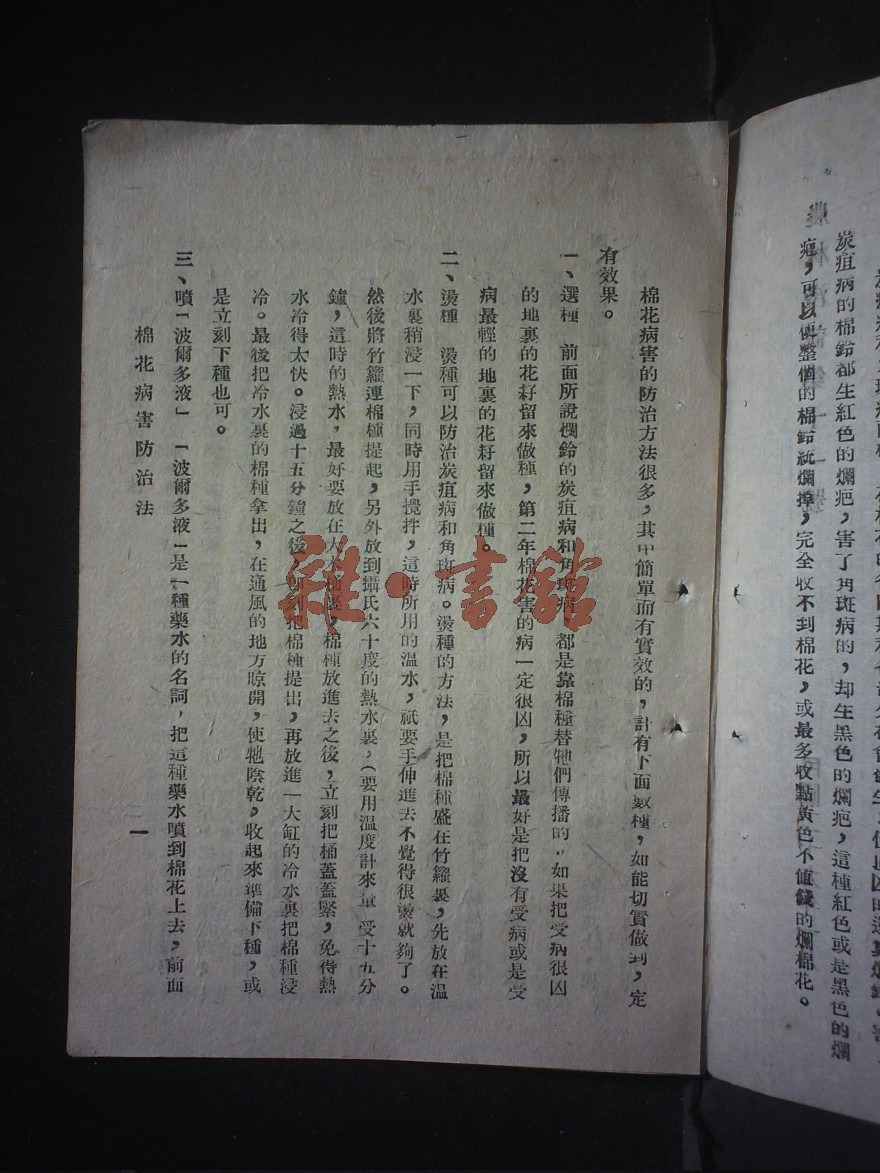 炭疽病的棉鈴都生紅色的爛疤，害了角斑病的，却生黑色的爛疤，這種紅色或是黑色的爛
疤，可以使整個的棉鈴統爛掉，完全收不到棉花，或最多收點黃色不值錢的爛棉花。
棉花病害的防治方法很多，其中簡單而有實效的，計有下面數種，如能切實做到，定
有效果。
一、選種　前面所說爛鈴的炭疽病和角斑病，都是靠棉種替牠們傳播的，如果把受病很凶
的地裏的花籽留來做種，第二年棉花害的病一定很凶，所以最好是把沒有受病或是受
病最輕的地裏的花籽留來做種。
二、燙種　燙種可以防治炭疽病和角斑病。燙種的方法，是把棉種盛在竹籮裏，先放在溫
水裏稍浸一下，同時用手攪拌，這時所用的溫水，祇要手伸進去不覺得很燙就夠了。
然後將竹籮連棉種提起，另外放到攝氏六十度的熱水裏，（要用溫度計來量 受十五分
鐘，這時的熱水，最好要放在大水桶裏，棉種放進去之後，立刻把桶蓋蓋緊，免得熱
水冷得太快。浸過十五分鐘之後，刻把棉種提出，再放進一大缸的冷水裏把棉種浸
冷。最後把冷水裏的棉種拿出，在通風的地方晾開，使牠陰乾，收起來準備下種，或
是立刻下種也可。
三、噴「波爾多液」　「波爾多液」是一種藥水的名詞，把這種藥水噴到棉花上去，前面
棉花病害防治法
雜·書館